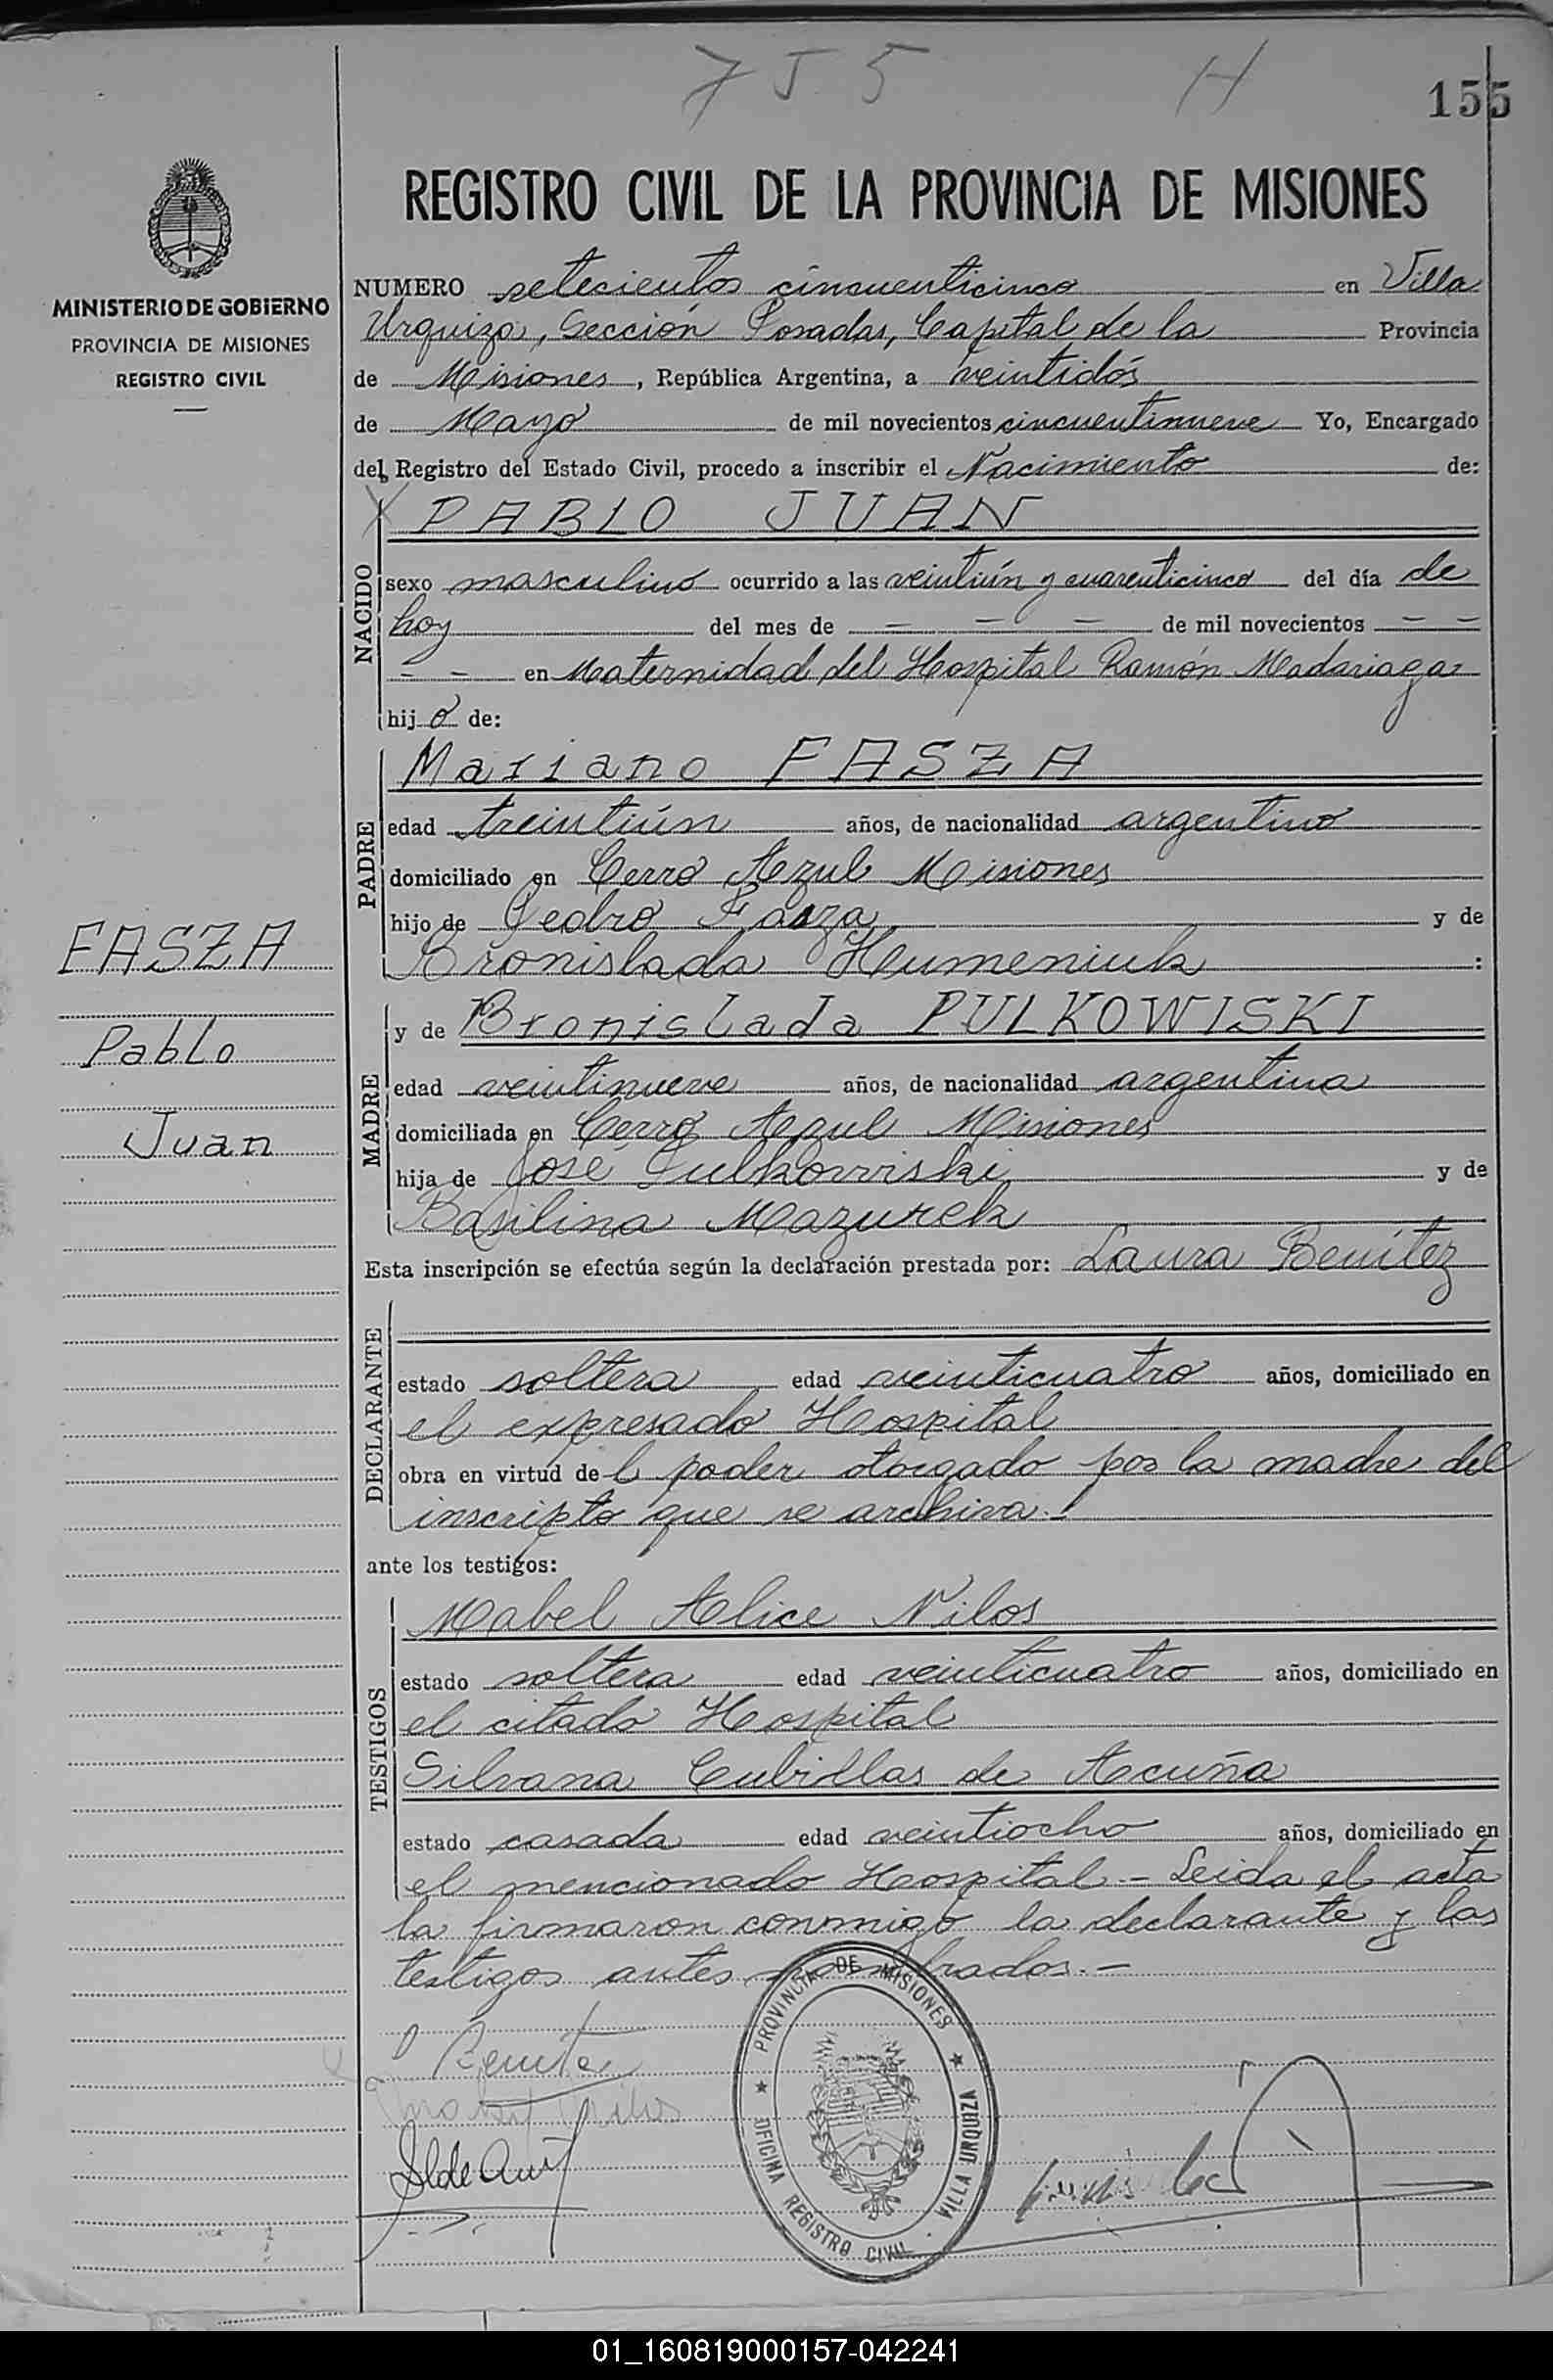 7 5 5 H
155
MINISTERIO DE GOBIERNO
PROVINCIA DE MISIONES
REGISTRO CIVIL
REGISTRO CIVIL DE LA PROVINCIA DE MISIONES
NUMERO setecientos cincuenticinco en Villa
Urquiza, Sección Posadas, Capital de la Provincia
de Misiones, República Argentina, a veintidós
de Mayo de mil novecientos cincuentinueve Yo, Encargado
del Registro del Estado Civil, procedo a inscribir el Nacimiento de:
X PABLO JUAN
NACIDO
sexo masculino ocurrido a las veintiún y cuarenticinco del día de
hoy del mes de — — — de mil novecientos — —
— — en Maternidad del Hospital Ramón Madariaga
hijo de:
Mariano FASZA
PADRE
edad treintiún años, de nacionalidad argentino
domiciliado en Cerro Azul Misiones
hijo de Pedro Fasza y de
Bronislada Humeniuk :
FASZA
Pablo
Juan
y de Bronislada PULKOWISKI
MADRE
edad veintinueve años, de nacionalidad argentina
domiciliada en Cerro Azul Misiones
hija de José Pulkowiski y de
Basilina Mazurek
Esta inscripción se efectúa según la declaración prestada por: Laura Benítez
DECLARANTE
estado soltera edad veinticuatro años, domiciliado en
el expresado Hospital
obra en virtud del poder otorgado por la madre del
inscripto que se archiva.-
ante los testigos:
Mabel Alice Nilos
TESTIGOS
estado soltera edad veinticuatro años, domiciliado en
el citado Hospital
Silvana Cubillas de Acuña
estado casada edad veintiocho años, domiciliado en
el mencionado Hospital.- Leida el acta
la firmaron conmigo la declarante y las
testigos antes nombrados.-
PROVINCIA DE MISIONES
OFICINA REGISTRO CIVIL · VILLA URQUIZA
Benitez
01_160819000157-042241